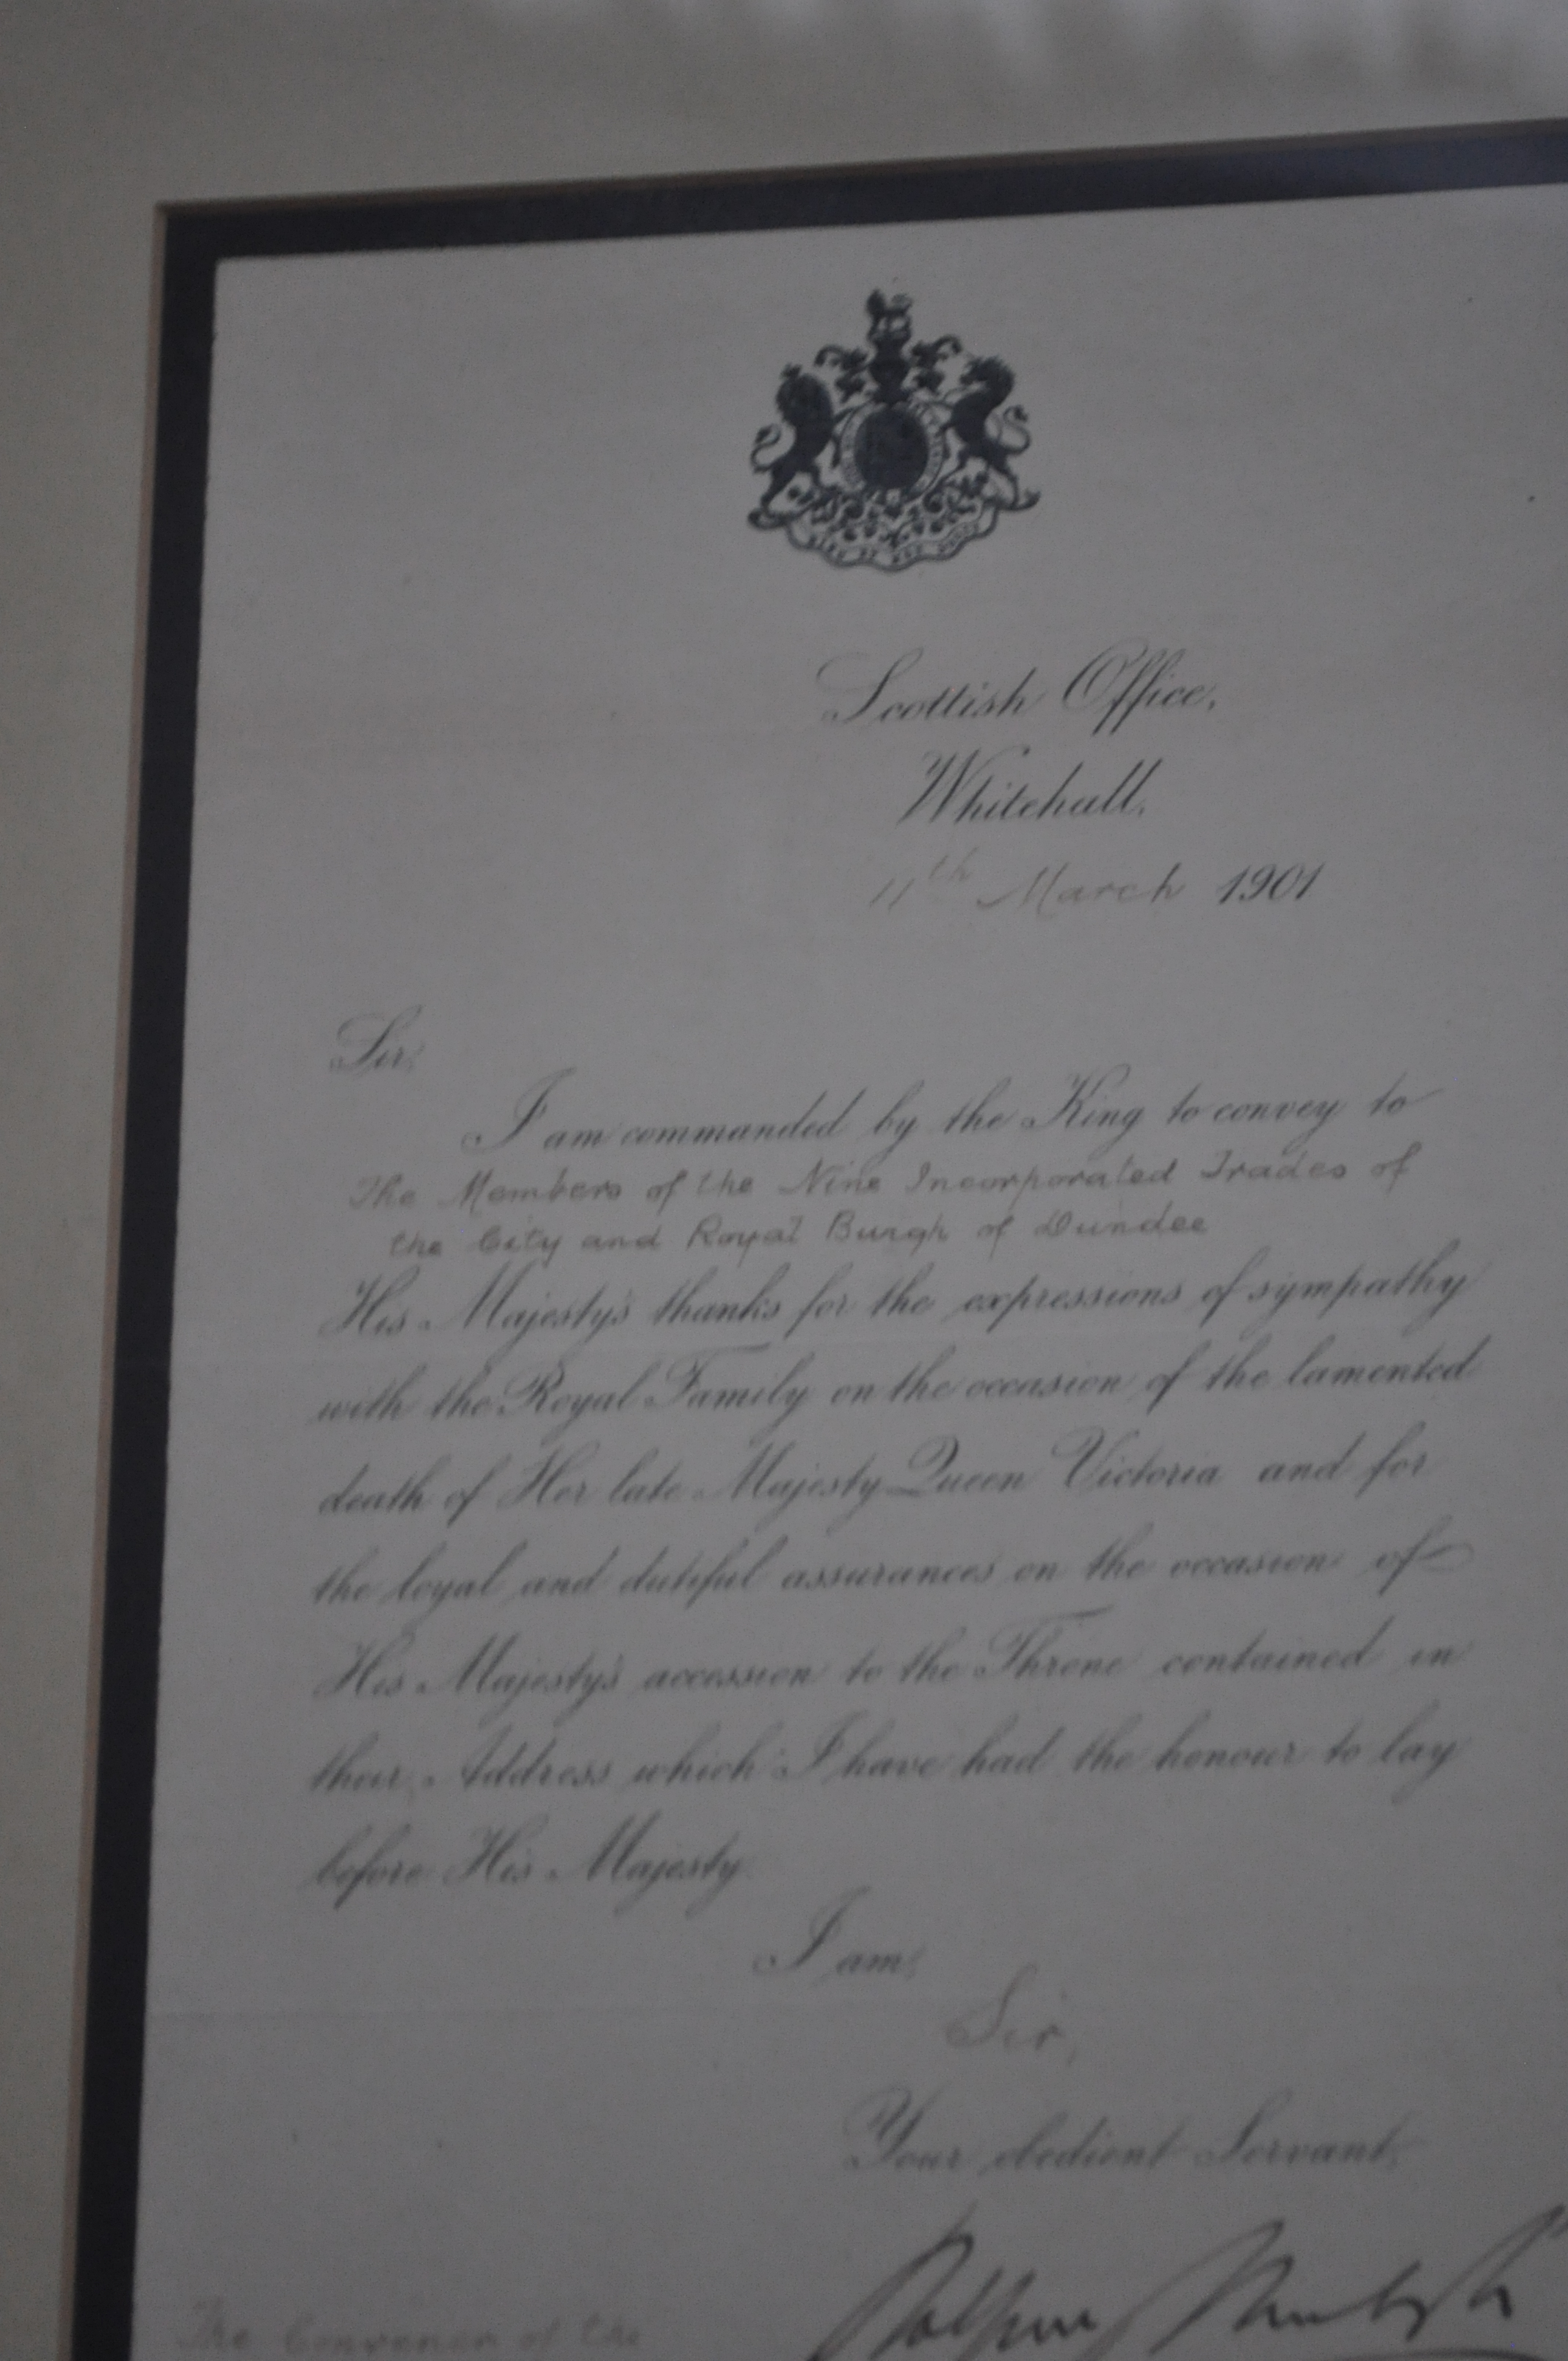 Scottish Office,
Whitehall.
11th March 1901
Sir,
I am commanded by the King to convey to
The Members of the Nine Incorporated Trades of
the City and Royal Burgh of Dundee
His Majesty's thanks for the expressions of sympathy
with the Royal Family on the occasion of the lamented
death of Her late Majesty Queen Victoria and for
the loyal and dutiful assurances on the occasion of
His Majesty's accession to the Throne contained in
their Address which I have had the honour to lay
before His Majesty.
I am,
Sir,
Your obedient Servant,
The Convener of the